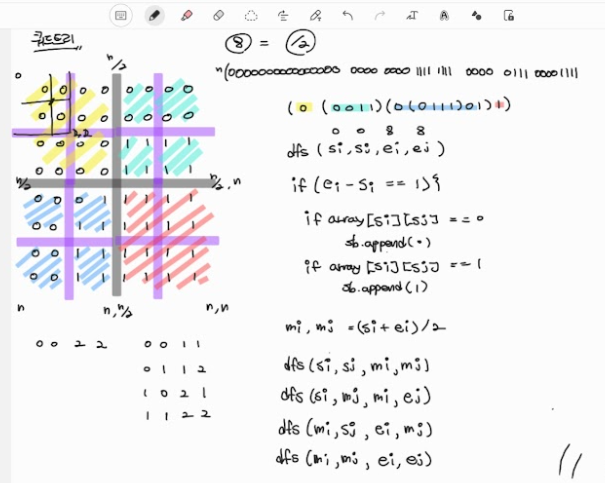 쿼드트리
⑧ = /2
n/2
n(000000000000000 0000 0000 1111 1111 0000 0111 00001111
0
0 0 0 0 0 0 0 0
0 0 0 0 0 0 0 0
2,2
0 0 0 0 1 1 1 1
0 0 0 0 1 1 1 1
n/2
n/2, n
0 0 0 1 1 1 1
0 0 1 1 1 1 1 1
0 0 1 1 1 1 1
0 0 1 1 1 1 1
n
n, n/2
n, n
(0 (0011)(0(0111)01)1)
0 0 8 8
dfs (si, si, ei, ej)
if (ei - si == 1){
if array[si][sj] == 0
sb.append(0)
if array [si][sj] == 1
sb.append(1)
mi, mj = (si + ei)/2
dfs (si, sj, mi, mj)
dfs (si, mj, mi, ej)
dfs (mi, sj, ei, mj)
dfs (mi, mj, ei, ej)
0 0 2 2
0 0 1 1
0 1 1 2
1 0 2 1
1 1 2 2